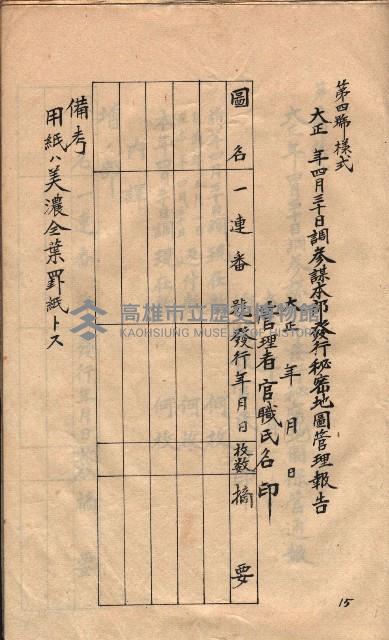 第四號樣式
大正　年四月三十日調參謀本部發行秘密地圖管理報告
大正　年　月　日
管理者官職氏名印
圖名　一連番號　發行年月日　枚数　摘要
備考
用紙ハ美濃全葉罫紙トス
高雄市立歷史博物館
KAOHSIUNG MUSEUM OF HISTORY
15